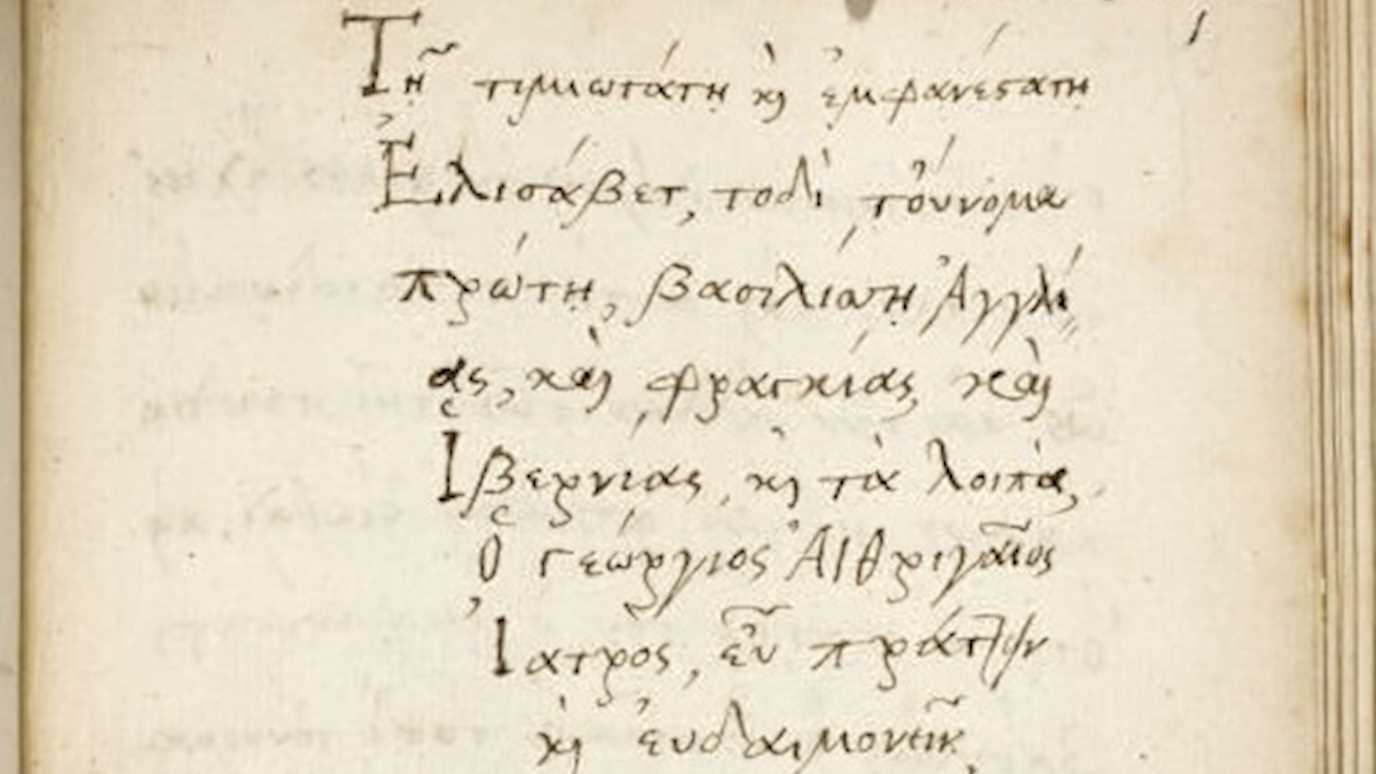 Τῇ τιμιωτάτῃ κ̀ ἐμφανεστάτῃ
Ἐλισάβετ, τοδὶ τὄυνομα
πρώτῃ, βασιλίσσῃ Ἀγγλί=
ας, καὶ φραγκίας καὶ
Ἱβερνίας, κ̀ τὰ λοιπὰ,
ὁ γεώργιος Ἀιθριγαῖος
Ἰατρὸς, ἐῦ πράττειν
κ̀ ἐυδαιμονεῖν,